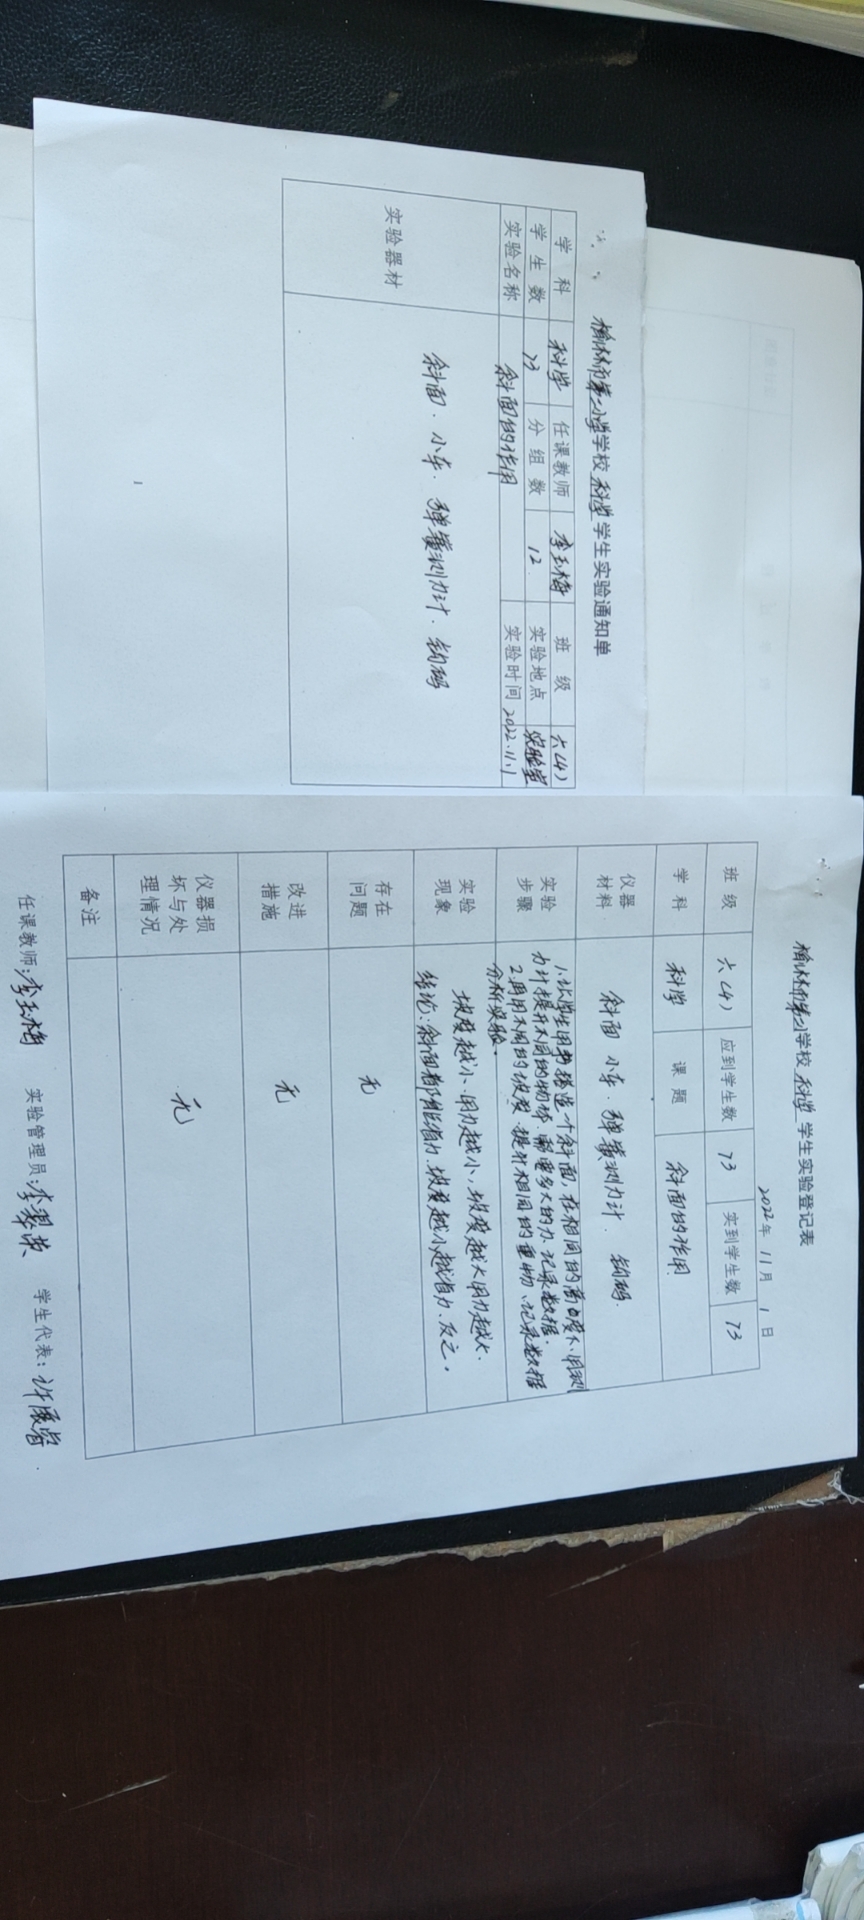 榆林市第二小学学校 科学 学生实验通知单
学科 科学 任课教师 李玉梅 班级 六(4)
学生数 73 分组数 12 实验地点 实验室
实验名称 斜面的作用 实验时间 2022.11.1
实验器材 斜面.小车.弹簧测力计.钩码
榆林市第二小学校 科学 学生实验登记表
2022年 11月 1日
班级 六(4) 应到学生数 73 实到学生数 73
学科 科学 课题 斜面的作用
仪器材料 斜面 小车.弹簧测力计. 钩码.
实验步骤 1.让学生用书搭造一个斜面,在相同的高度下,用测
力计提升不同的物体,需要多大的力.记录数据.
2.再用不同的坡度.提升相同的重物、记录数据
分析实验.
实验现象 坡度越小.用力越小,坡度越大用力越大.
结论:斜面都能省力.坡度越小越省力.反之。
存在问题 无
改进措施 无
仪器损坏与处理情况 无
备注
任课教师:李玉梅 实验管理员:李翠英 学生代表:许